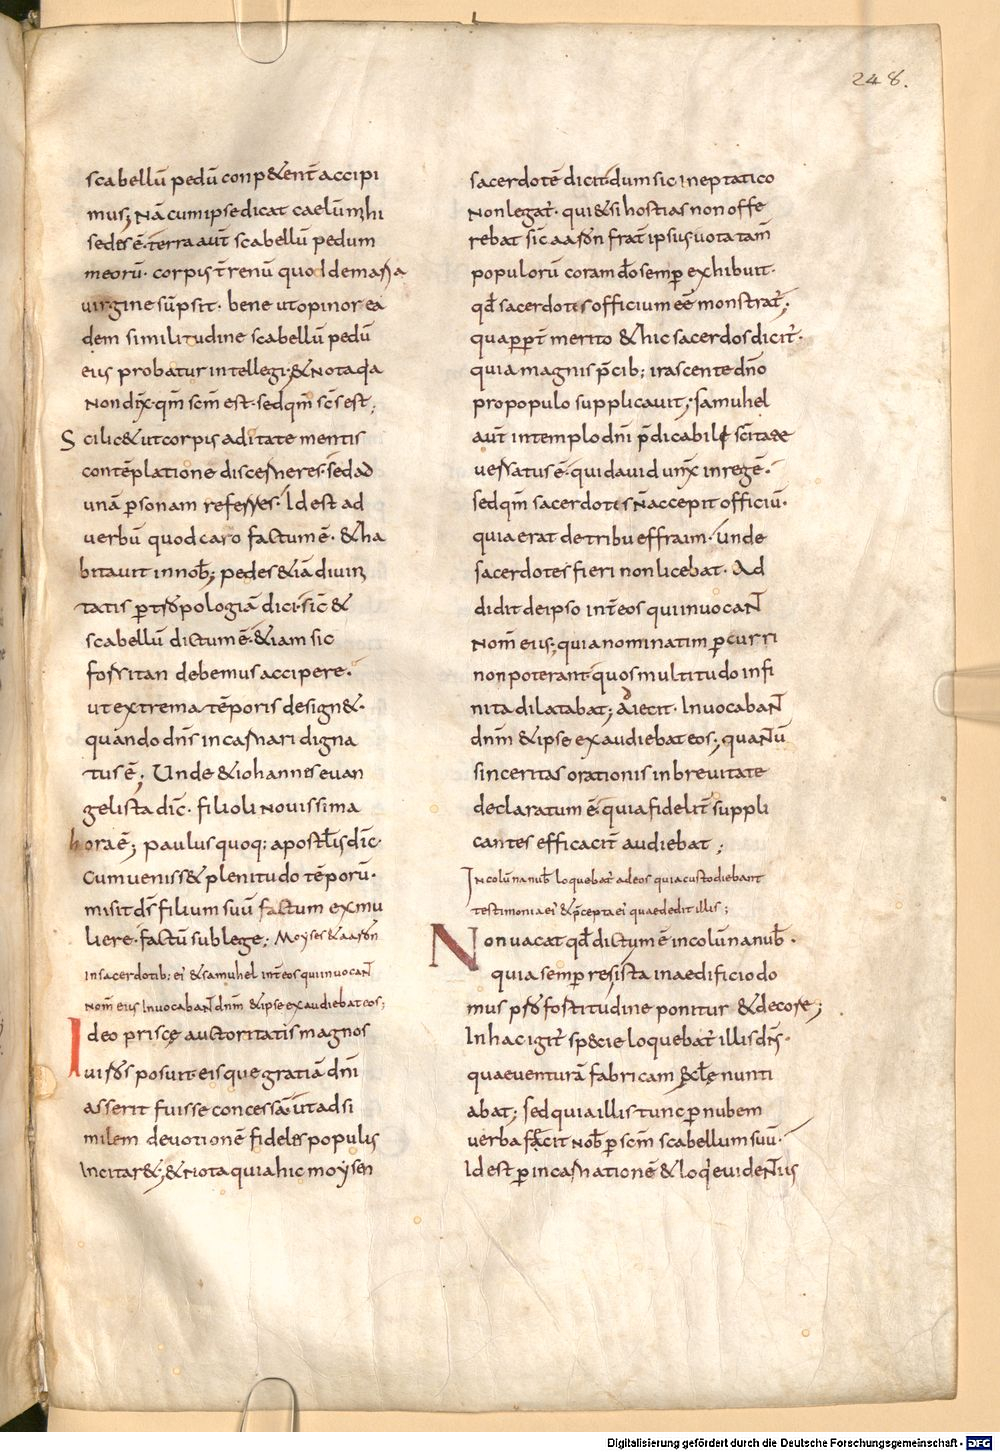 248.
scabellū pedū conp&ent̄ accipi
mus; Nā cum ipse dicat caelū mihi
sedes ē. terra aut̄ scabellū pedum
meorū. corpis t̄renū quod demaria
virgine sūpsit. bene ut opinor ea
dem similitudine scabellū pedū
eius probatur intellegi. & nota qa
non dix̄. qm̄ sc̄m est. sed qm̄ sc̄s est;
Scilic& ut corpis aditate mentis
contēplatione discerneres. sed ad
unā p̱sonam referres. Id est ad
verbū quod caro factum ē. & ha
bitavit in nob̄; pedes & iā divini
tatis p̱ tropologiā dici. sic̄ &
scabellū dictum ē. & iam sic
forsitan debemus accipere.
ut extrema tēporis design&.
quando dn̄s incarnari digna
tus ē; Unde & iohannes evan
gelista dic̄. filioli novissima
hora ē; paulus quoq: apostl̄is dic̄.
Cum veniss& plenitudo tēporū.
misit ds̄ filium suū factum ex mu
liere. factū sub lege; Moyses & aaron
in sacerdotib: ei & samuhel int̄ eos qui invocant
nom̄ eius Invocabant dnm̄ & ipse exaudiebat eos;
Ideo priscę auctoritatis magnos
viros posuit. eisque gratiā dn̄i
asserit fuisse concessā. ut ad si
milem devotionē fideles populis
Incitar&; & nota quia hic moysen
sacerdotē dicit. dum sic in eptatico
Non legat̄. qui & si hostias non offe
rebat sic̄ aaron frat̄ ipsius vota tam̄
populorū coram do̅ semp̱ exhibuit.
qd̄ sacerdotis officium eē monstrat̄;
quapp̱t̄ merito & hic sacerdos dicit̄.
quia magnis p̄cib; irascente dn̄o
pro populo supplicavit; samuhel
aut̄ in templo dn̄i p̄dicabile scītate
versatus ē. qui david unx̄ in regē.
sed qm̄ sacerdotis n̄ accepit officiū.
quia erat de tribu effraim. unde
sacerdotes fieri non licebat. Ad
didit de ipso int̄ eos qui invocant
nom̄ eius; quia nominatim p̱curri
non poterant. quos multitudo infi
nita dilatabat; adiecit. Invocabant
dnm̄ & ipse exaudiebat eos; quantū
sinceritas orationis in brevitate
declaratum ē. quia fidelit̄ suppli
cantes efficacit̄ audiebat;
In colūna nub̄ loquebat̄ ad eos quia custodiebant
testimonia ei & p̄cepta ei quae dedit illis;
Non vacat qd̄ dictum ē in colūna nub̄.
quia semp̱ res ista in aedificio do
mus p̱ fortitudine ponitur & decore;
In hac igit̄ specie loquebat̄ illis dn̄s.
quae venturā fabricam ęcl̄ę nunti
abat; sed quia illis tunc p̱ nubem
verba facit nob̄ p̱ sc̄m scabellum suū.
Id est p̱ incarnationē & loq̄ evidentius
Digitalisierung gefördert durch die Deutsche Forschungsgemeinschaft - DFG